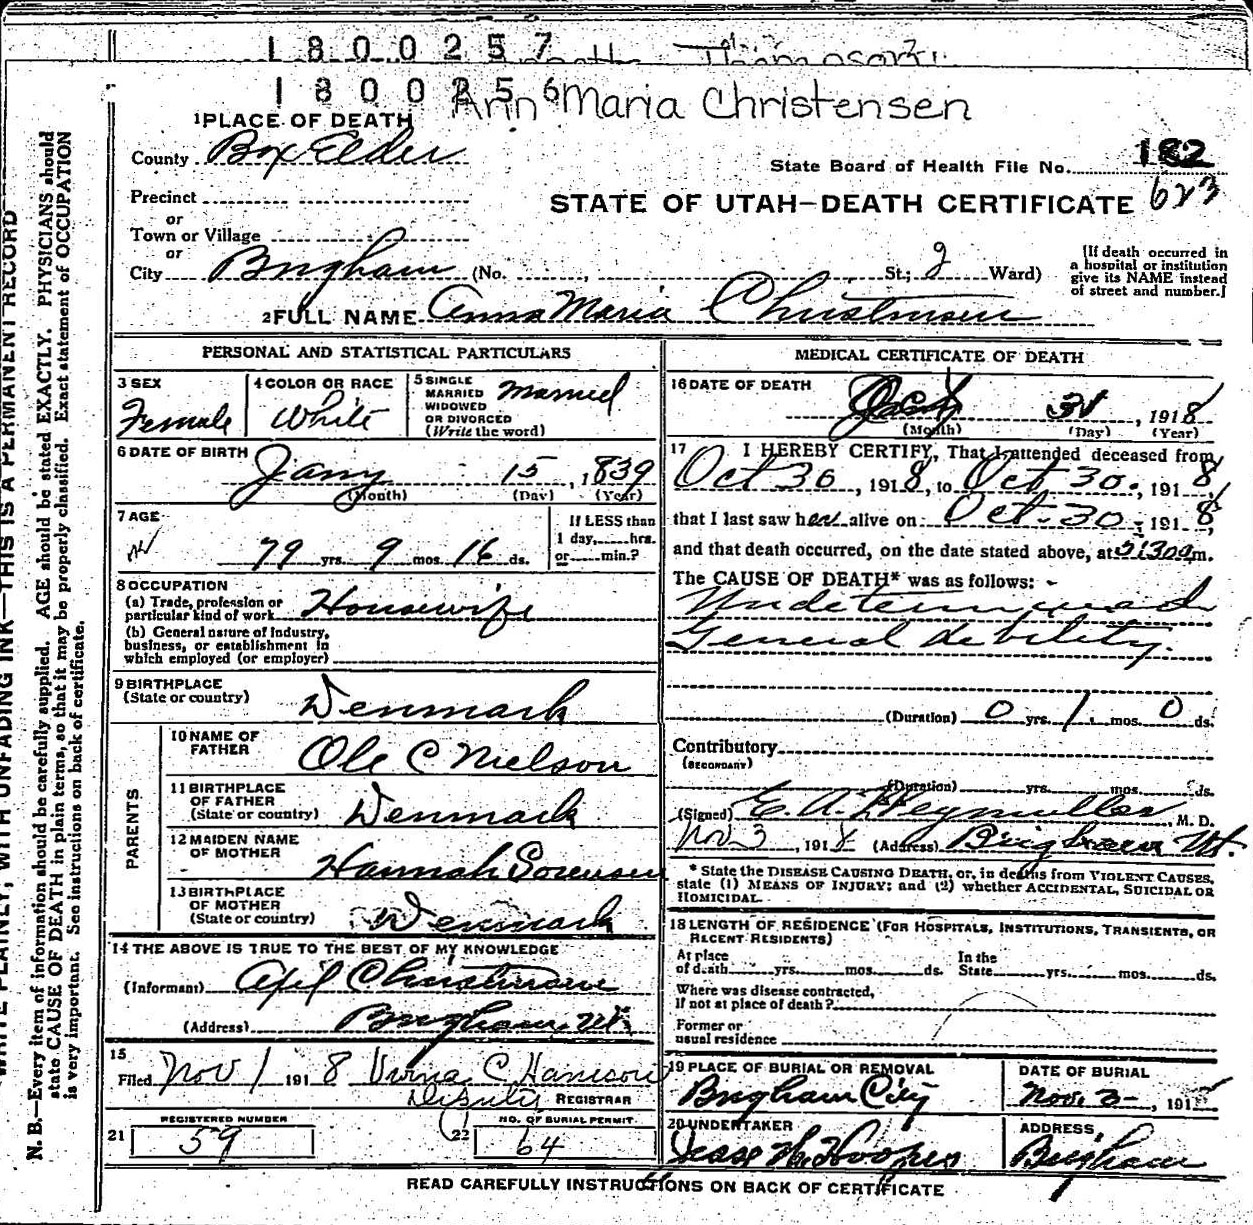 1800257
1800256
Ann Maria Christensen
1 PLACE OF DEATH
County Box Elder
State Board of Health File No. 182
Precinct
623
STATE OF UTAH—DEATH CERTIFICATE
or
Town or Village
or
City Brigham (No. , St.; 2 Ward)
[If death occurred in a hospital or institution give its NAME instead of street and number.]
2 FULL NAME Anna Maria Christensen
PERSONAL AND STATISTICAL PARTICULARS
3 SEX
Female
4 COLOR OR RACE
White
5 SINGLE
MARRIED
WIDOWED
OR DIVORCED
(Write the word)
Married
6 DATE OF BIRTH
Jany 15, 1839
(Month) (Day) (Year)
7 AGE
79 yrs. 9 mos. 16 ds.
If LESS than
1 day, hrs.
or min.?
8 OCCUPATION
(a) Trade, profession or
particular kind of work Housewife
(b) General nature of industry,
business, or establishment in
which employed (or employer)
9 BIRTHPLACE
(State or country) Denmark
PARENTS
10 NAME OF
FATHER Ole C Nielson
11 BIRTHPLACE
OF FATHER
(State or country) Denmark
12 MAIDEN NAME
OF MOTHER Hannah Sorensen
13 BIRTHPLACE
OF MOTHER
(State or country) Denmark
14 THE ABOVE IS TRUE TO THE BEST OF MY KNOWLEDGE
(Informant) Christensen
(Address) Brigham, Ut.
15
Filed Nov 1 1918
Deputy REGISTRAR
REGISTERED NUMBER
21 59
NO. OF BURIAL PERMIT
22 64
MEDICAL CERTIFICATE OF DEATH
16 DATE OF DEATH
Oct 31, 1918
(Month) (Day) (Year)
17 I HEREBY CERTIFY, That I attended deceased from
Oct 30, 1918, to Oct 30, 1918,
that I last saw her alive on Oct. 30, 1918,
and that death occurred, on the date stated above, at m.
The CAUSE OF DEATH* was as follows:
Undetermined
General debility.
(Duration) 0 yrs. 1 mos. 0 ds.
Contributory
(SECONDARY)
(Duration) yrs. mos. ds.
(Signed) E. A. , M. D.
Nov 3, 1918 (Address) Brigham Ut.
* State the DISEASE CAUSING DEATH, or, in deaths from VIOLENT CAUSES,
state (1) MEANS OF INJURY; and (2) whether ACCIDENTAL, SUICIDAL OR
HOMICIDAL.
18 LENGTH OF RESIDENCE (FOR HOSPITALS, INSTITUTIONS, TRANSIENTS, OR
RECENT RESIDENTS)
At place
of death yrs. mos. ds.
In the
State yrs. mos. ds.
Where was disease contracted,
If not at place of death?
Former or
usual residence
19 PLACE OF BURIAL OR REMOVAL
Brigham City
DATE OF BURIAL
Nov. 191
20 UNDERTAKER
ADDRESS
Brigham
READ CAREFULLY INSTRUCTIONS ON BACK OF CERTIFICATE
WRITE PLAINLY, WITH UNFADING INK—THIS IS A PERMANENT RECORD
N. B.—Every item of information should be carefully supplied. AGE should be stated EXACTLY. PHYSICIANS should
state CAUSE OF DEATH in plain terms, so that it may be properly classified. Exact statement of OCCUPATION
is very important. See instructions on back of certificate.